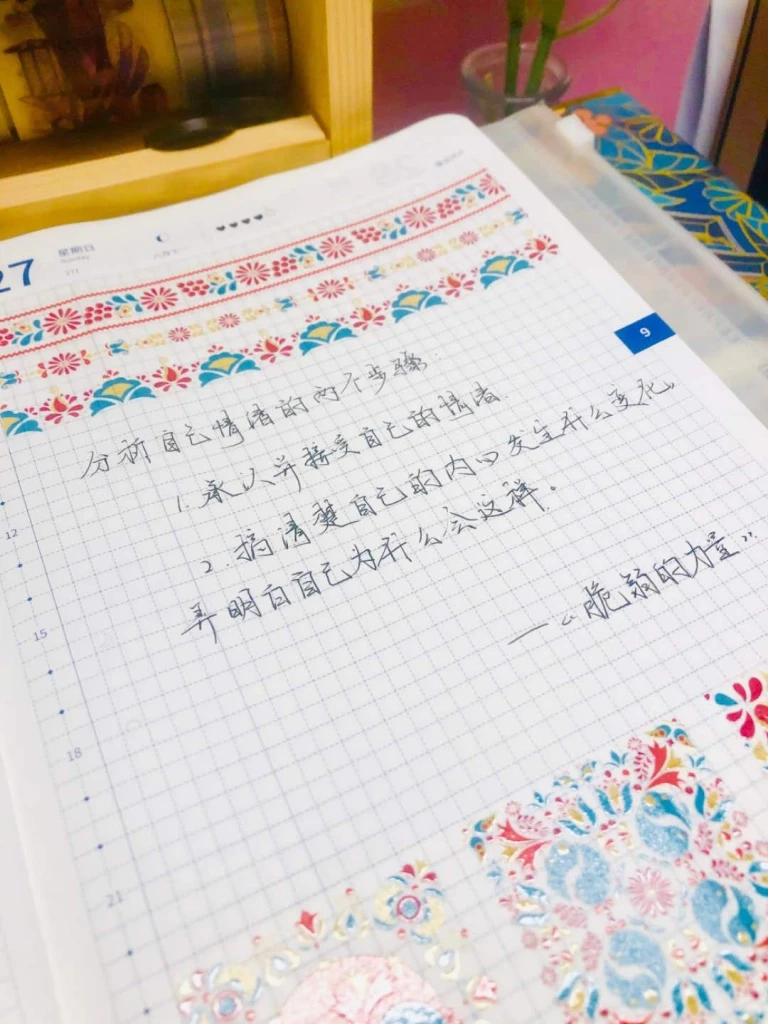 27
星期日
Sunday
271
9
分析自己情绪的两个步骤:
1. 承认并接受自己的情绪.
12
2. 搞清楚自己的内心发生什么变化,
弄明白自己为什么会这样.
15
—《脆弱的力量》
18
21